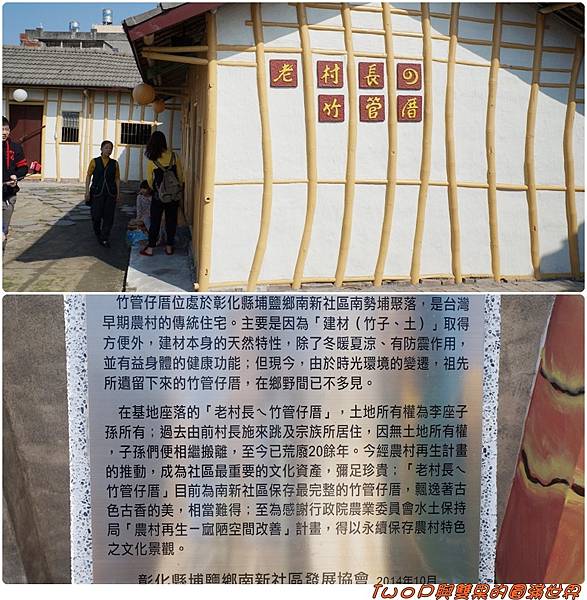 老村長の
竹管厝
竹管仔厝位處於彰化縣埔鹽鄉南新社區南勢埔聚落，是台灣
早期農村的傳統住宅。主要是因為「建材（竹子、土）」取得
方便外，建材本身的天然特性，除了冬暖夏涼、有防震作用，
並有益身體的健康功能；但現今，由於時光環境的變遷，祖先
所遺留下來的竹管仔厝，在鄉野間已不多見。
在基地座落的「老村長ㄟ竹管仔厝」，土地所有權為李座子
孫所有；過去由前村長施來跳及宗族所居住，因無土地所有權
，子孫們便相繼搬離，至今已荒廢20餘年。今經農村再生計畫
的推動，成為社區最重要的文化資產，彌足珍貴；「老村長ㄟ
竹管仔厝」目前為南新社區保存最完整的竹管仔厝，飄逸著古
色古香的美，相當難得；至為感謝行政院農業委員會水土保持
局「農村再生－窳陋空間改善」計畫，得以永續保存農村特色
之文化景觀。
彰化縣埔鹽鄉南新社區發展協會 2014年10月
TwoP與雙果的圓滿世界